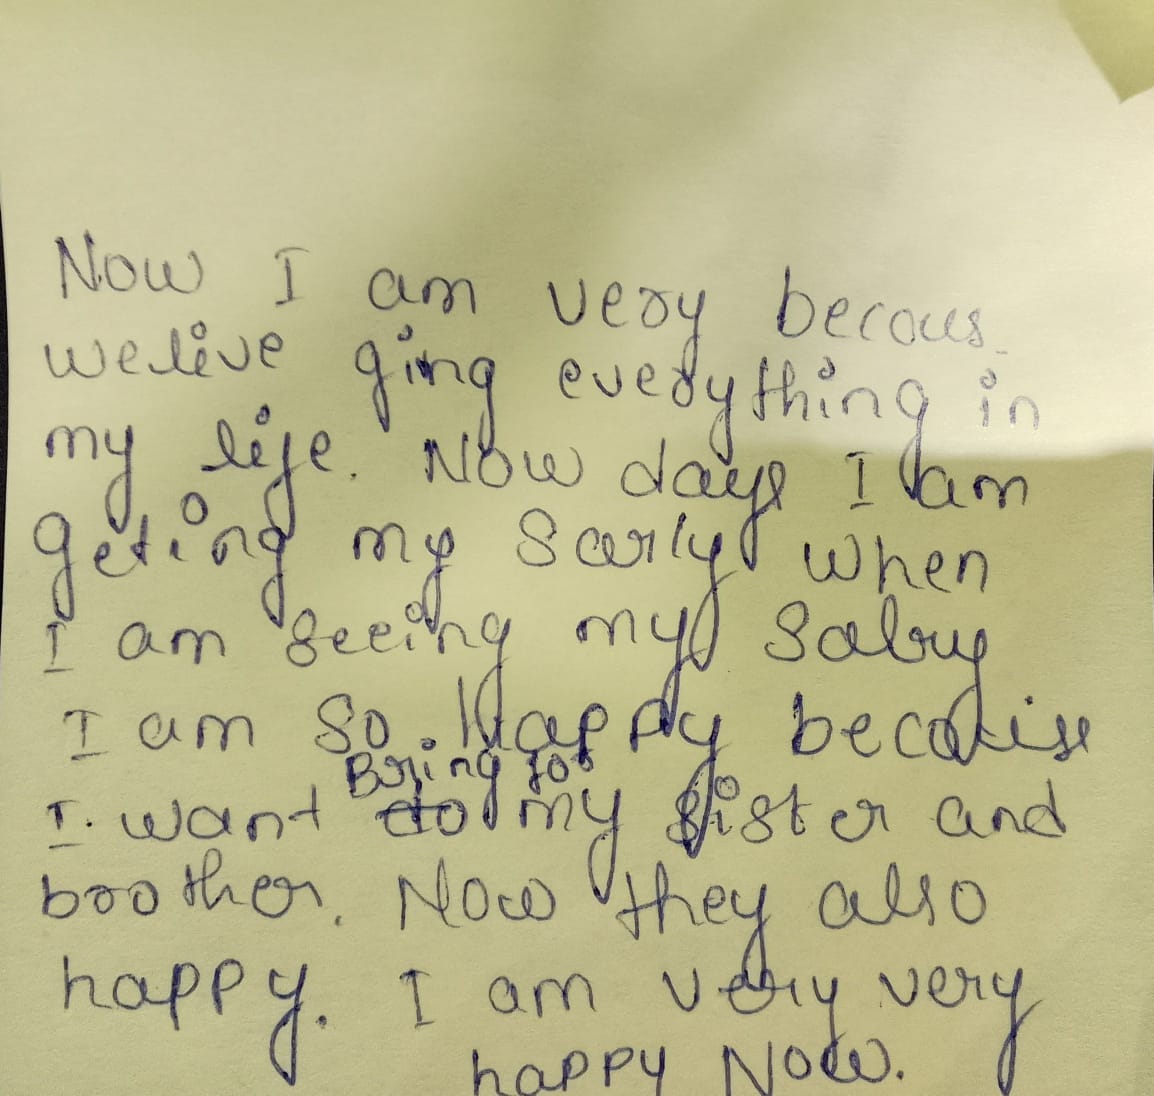 Now I am very becous
welive ging everything in
my life. Now days I am
geting my Sarly when
I am seeing my Salry
I am So. Happy becouise
Bring for
I. want to my Sister and
broother. Now they also
happy. I am very very
happy Now.